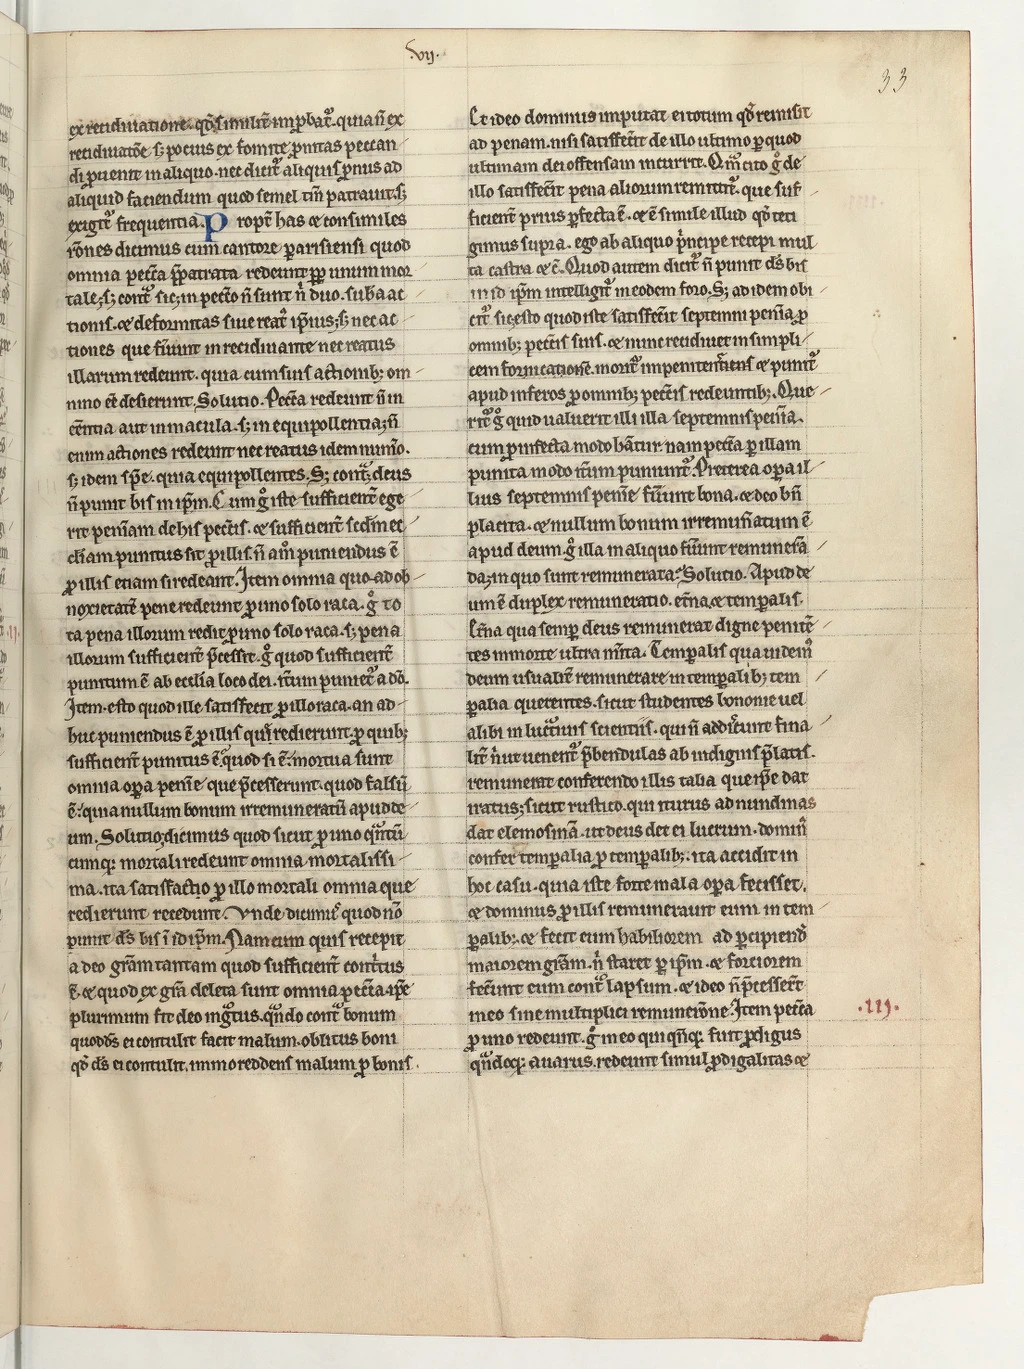 .vij.
33
ex recidiuatione. qd' similit' improbat'. quia n̄ ex
recidiuatōe s; pocius ex fomite pronitas peccan
di prouenit in aliquo. nec dicit' aliquis pronus ad
aliquid faciendum quod semel tm̄ patrauit. s;
exigit' frequentia. Propt' has ⁊ consimiles
rōnes dicimus cum cantore parisiensi quod
omnia pecc̄ta p̄patrata redeunt ꝓpt' unum mor
tale; s; cont' sic; in pecc̄to n̄ sunt n̄ duo. s. uba ac
tionis. ⁊ deformitas siue reat' ip̄ius; s; nec ac
tiones que fiūnt in recidiuante nec reatus
illarum redeunt. quia cum suis actionib; om
nino ē desierunt. Solutio. Pecc̄ta redeunt n̄ in
ēētia aut in macula. s; in equipollentia; n̄
enim actiones redeunt nec reatus idem num̄o.
s; idem sp̄e. quia equipollentes. S; cont'; deus
n̄ punit bis in ip̄m. Cum g̊ iste sufficient' ege
rit peniam de his pecc̄tis. ⁊ sufficient' scd'm ec
cl̄iam punitus sit ꝓ illis. n̄ am̄ puniendus ē
ꝓ illis etiam si redeant. Item omnia quo ad ob
noxietatē pene redeunt ꝓ uno solo raca. g̊ to
ta pena illorum redit ꝓ uno solo raca. s; pena
illorum sufficient' p̄cessit. g̊ quod sufficient'
punitum ē ab ecc̄lia loco dei. it'um puniet' a dō.
Item. esto quod ille satisfecit ꝓ illo raca. an ad
huc puniendus ē ꝓ illis qui redierunt. ꝓ quib;
sufficient' punitus ē. quod si ē. mortua sunt
omnia opa penīe que p̄cesserunt. quod falsū
ē. quia nullum bonum irremuneratū apud de
um. Solutio; dicimus quod sicut ꝓ uno quātū
cumq; mortali redeunt omnia mortalissi
ma. ita satisfactio ꝓ illo mortali omnia que
redierunt recedunt. Vnde dicimus quod nō
punit d's bis ī id ip̄m. Nam cum quis recepit
a deo gr̄am tantam quod sufficient' contitus
ē. ⁊ quod ex gr̄a deleta sunt omnia pecc̄ta ip̄e
plurimum fit deo ing̊tus. qn̄do cont' bonum
quod d's ei contulit facit malum. oblitus boni
qd' d's ei contulit. immo reddens malum ꝓ bonis.
Et ideo dominus imputat ei totum qd' remisit
ad penam. nisi satisfecit' de illo ultimo ꝓ quod
ultimam dei offensam incurrit. Qm̄ cito g̊ de
illo satisfecit' pena aliorum remittit'. que suf
ficient' prius ꝑfecta ē. ⁊ ē simile illud qd' teti
gimus supra. ego ab aliquo p̄ncipe recepi mul
ta castra ⁊ ē. Quod autem dicit' n̄ punit d's bis
in id ip̄m intelligit' in eodem foro. S; ad idem obi
cit' sic; esto quod iste satisfecit' septemni penīa ꝓ
omnib; pecc̄tis suis. ⁊ nunc recidiuet in simpli
cem fornicationē. morit' impenitens ⁊ punit'
apud inferos ꝓ omnib; pecc̄tis redeuntib;. Que
rit' g̊ quid ualuerit illi illa septemnis penīa.
cum pro infecta modo hātur. nam pecc̄ta ꝓ illam
punita modo it'um puniunt'. Preterea opa il
lius septemnis penīe fuīunt bona. ⁊ deo bn̄
placita. ⁊ nullum bonum irremun̄atum ē
apud deum. g̊ illa in aliquo fuīunt remunera
da; in quo sunt remunerata. Solutio. Apud de
um ē duplex remuneratio. et'na ⁊ tempalis.
Et'na qua semp deus remunerat digne penitē
tes in morte ultra m'ita. Temporalis qua uidem'
deum usualit' remunerare in tempalib; tem
palia querentes. sicut studentes bononie uel
alibi in luc̄tiuis scientiis. qui n̄ addiscunt fina
lit' n̄ ut uenent' p̄bendulas ab indignis p̄latis.
remunerat conferendo illis talia que ip̄e dat
iratus; sicut rustico. qui iturus ad nundinas
dat elemosinā. ut deus det ei lucrum. domin'
confert tempalia ꝓ tempalib;. ita accidit in
hoc casu. quia iste forte mala opa fecisset.
⁊ dominus ꝓ illis remunerauit eum in tem
palib;. ⁊ fecit eum habiliorem ad ꝑcipiend'
maiorem gr̄am. n̄ staret ꝑ ip̄m. ⁊ forciorem
fecīunt eum cont' lapsum. ⁊ ideo n̄ p̄cesserīt
in eo sine multiplici remunerōne. Item pecc̄ta
ꝓ uno redeunt. g̊ in eo qui qn̄q; fuit ꝓdigus
qn̄doq; auarus. redeunt simul ꝓdigalitas ⁊
.III.